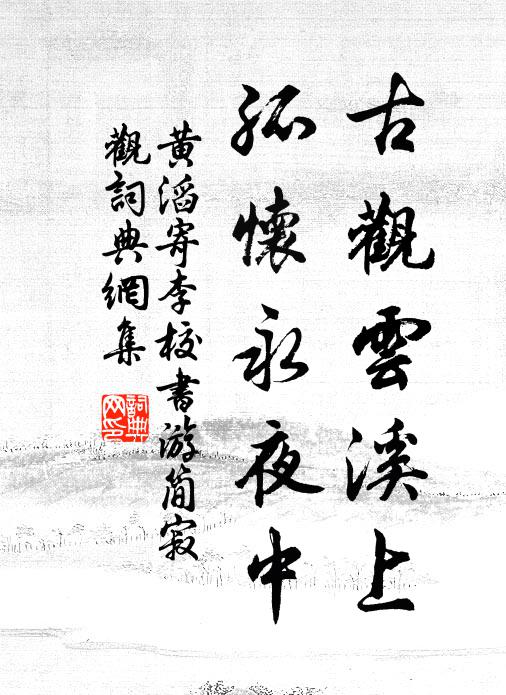 古觀雲溪上
孤懷永夜中
黄滔寄李校書游簡寂
觀詞典網集
詞典網印